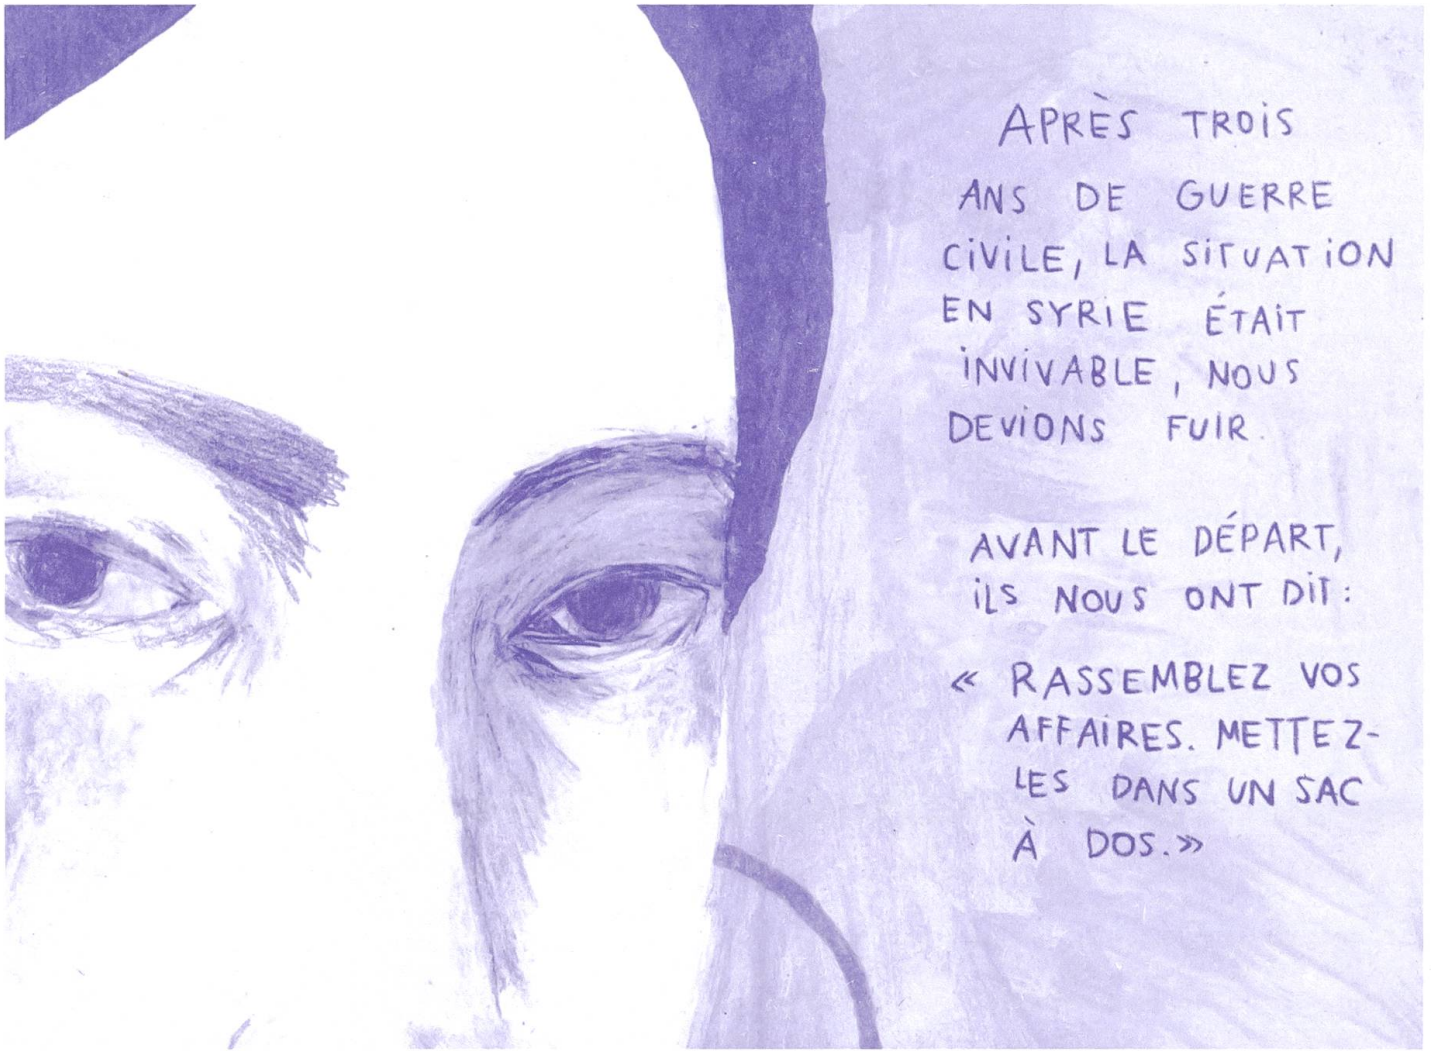 APRÈS TROIS
ANS DE GUERRE
CIVILE, LA SITUATION
EN SYRIE ÉTAIT
INVIVABLE, NOUS
DEVIONS FUIR.
AVANT LE DÉPART,
ILS NOUS ONT DIT :
« RASSEMBLEZ VOS
AFFAIRES. METTEZ-
LES DANS UN SAC
À DOS. »